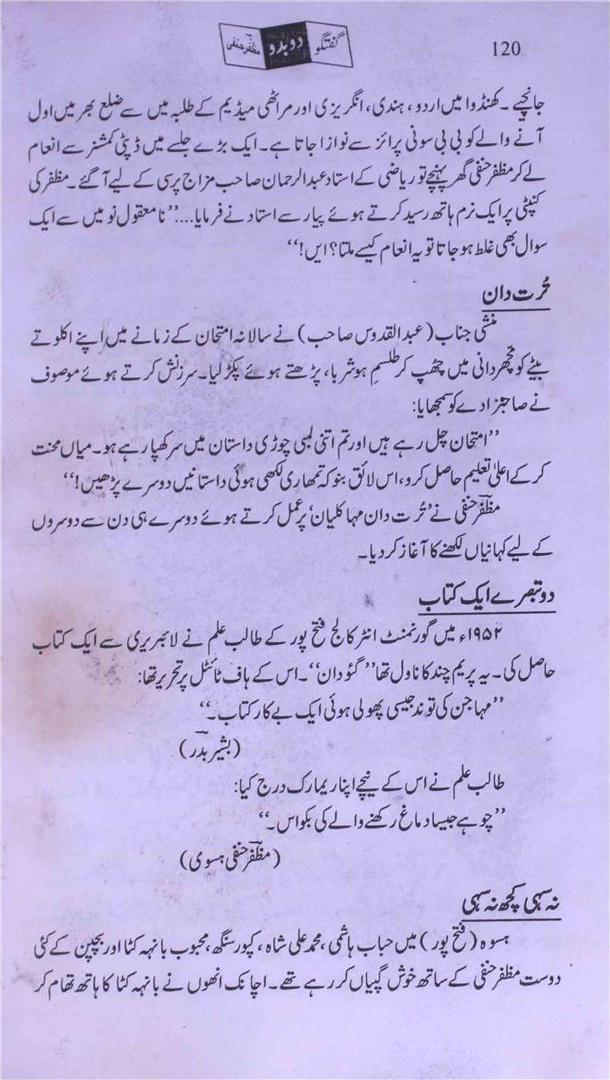 120
گفتگو دوبدو مظفر حنفی
جانچیے۔ کھنڈوا میں اردو، ہندی، انگریزی اور مراٹھی میڈیم کے طلبہ میں سے ضلع بھر میں اول
آنے والے کو بی بی سونی پرائز سے نوازا جاتا ہے۔ ایک بڑے جلسے میں ڈپٹی کمشنر سے انعام
لے کر مظفر حنفی گھر پہنچے تو ریاضی کے استاد عبدالرحمان صاحب مزاج پرسی کے لیے آگئے۔ مظفر کی
کنپٹی پر ایک نرم ہاتھ رسید کرتے ہوئے پیار سے استاد نے فرمایا....’’نامعقول نو میں سے ایک
سوال بھی غلط ہو جاتا تو یہ انعام کیسے ملتا؟ ایں!‘‘
تُرت دان
منشی جناب (عبدالقدوس صاحب) نے سالانہ امتحان کے زمانے میں اپنے اکلوتے
بیٹے کو مچھردانی میں چھپ کر طلسمِ ہوشربا، پڑھتے ہوئے پکڑ لیا۔ سرزنش کرتے ہوئے موصوف
نے صاحبزادے کو سمجھایا:
’’امتحان چل رہے ہیں اور تم اتنی لمبی چوڑی داستان میں سر کھپا رہے ہو۔ میاں محنت
کر کے اعلیٰ تعلیم حاصل کرو، اس لائق بنو کہ تمھاری لکھی ہوئی داستانیں دوسرے پڑھیں!‘‘
مظفر حنفی نے ’تُرت دان مہا کلیان‘ پر عمل کرتے ہوئے دوسرے ہی دن سے دوسروں
کے لیے کہانیاں لکھنے کا آغاز کر دیا۔
دو تبصرے ایک کتاب
۱۹۵۲ء میں گورنمنٹ انٹر کالج فتح پور کے طالب علم نے لائبریری سے ایک کتاب
حاصل کی۔ یہ پریم چند کا ناول تھا ’’گئودان‘‘۔ اس کے ہاف ٹائٹل پر تحریر تھا:
’’مہاجن کی توند جیسی پھولی ہوئی ایک بے کار کتاب۔‘‘
(بشیر بدر)
طالب علم نے اس کے نیچے اپنا ریمارک درج کیا:
’’چوہے جیسا دماغ رکھنے والے کی بکواس۔‘‘
(مظفر حنفی ہسوی)
نہ سہی کچھ نہ سہی
ہسوہ (فتح پور) میں حباب ہاشمی، محمد علی شاہ، کپور سنگھ، محبوب بانہہ کٹا اور بچپن کے کئی
دوست مظفر حنفی کے ساتھ خوش گپیاں کر رہے تھے۔ اچانک انھوں نے بانہہ کٹا کا ہاتھ تھام کر